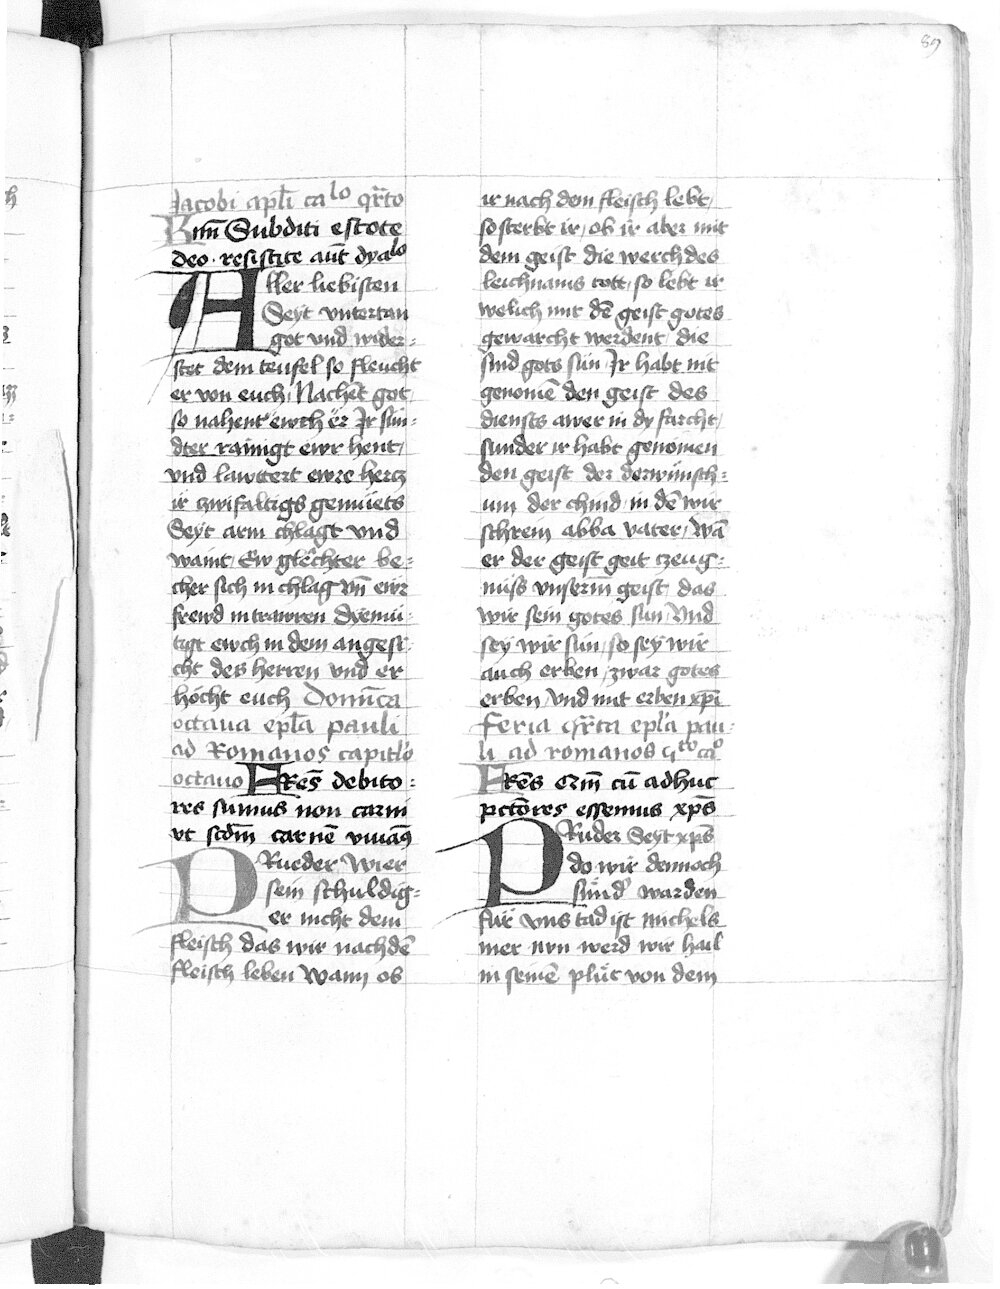 89
Jacobi apl̄i calo qr̄to
Km̄ Subditi estote
deo · resistite aūt dyalo
Aller liebisten
Seyt vntertan
got vnd wider⸗
stet dem teufel so fleucht
er von euch / Nachēt got
so nahent ewch er Jr sün⸗
dter rainigt ewr hent /
vnd lawttert ewre hercz
ir zwifaltigs gemüets
Seyt arm chlagt vnd
waint / Ew glêchter be⸗
cher sich in chlag vn̄ ewr
frewd in trawren Dyemü⸗
tigt ewch in dem angesi⸗
cht des herren vnd er
höcht euch Domīca
octaua epl̄a pauli
ad Romanos capitlo
octauo FRēs debito⸗
res sumus non carni
vt scdm̄ carnē viuāꝰ
PRueder Wier
sein schuldig⸗
er nicht dem
fleisch das wir nach dē
fleisch leben Wann ob
ir nach dem fleisch lebt /
so sterbt ir / ob ir aber mit
dem geist die werch des
leichnams tött / so lebt ir
welich mit dē geist gotes
gewarcht werdent / die
sind gots sün Jr habt nit
genomē den geist des
diensts awer in dy farcht /
sunder ir habt genömen
den geist der derwünsch⸗
um der chind / in dē wir
schrein abba vater / Wā
er der geist geit czeug⸗
nüss vnserm̄ geist / das
wir sein gotes sün / Vnd
sey wir sün / so sey wir
auch erben / zwar gotes
erben / vnd mit erben xp̄i
feria qr̄ta epl̄a pau⸗
li ad romanos qto cao
FRēs em̄ cū adhuc
pctōres essemus xp̄s
PRuder Seyt xp̄s
do wir dennoch
sünd' warden
für vns tad ist michels
mer nvn werd wir hail
in seinē plüt von dem